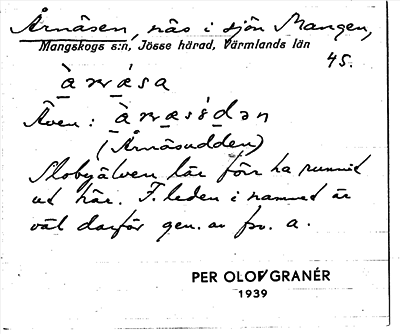 Årnäsen, näs i sjön Mangen,
Mangskogs s:n, Jösse härad, Värmlands län
45.
Även :
(Årnäsudden)
Slobyälven lär förr ha runnit
ut här. F. leden i namnet är
väl därför gen. av fv. a.
PER OLOF GRANÉR
1939